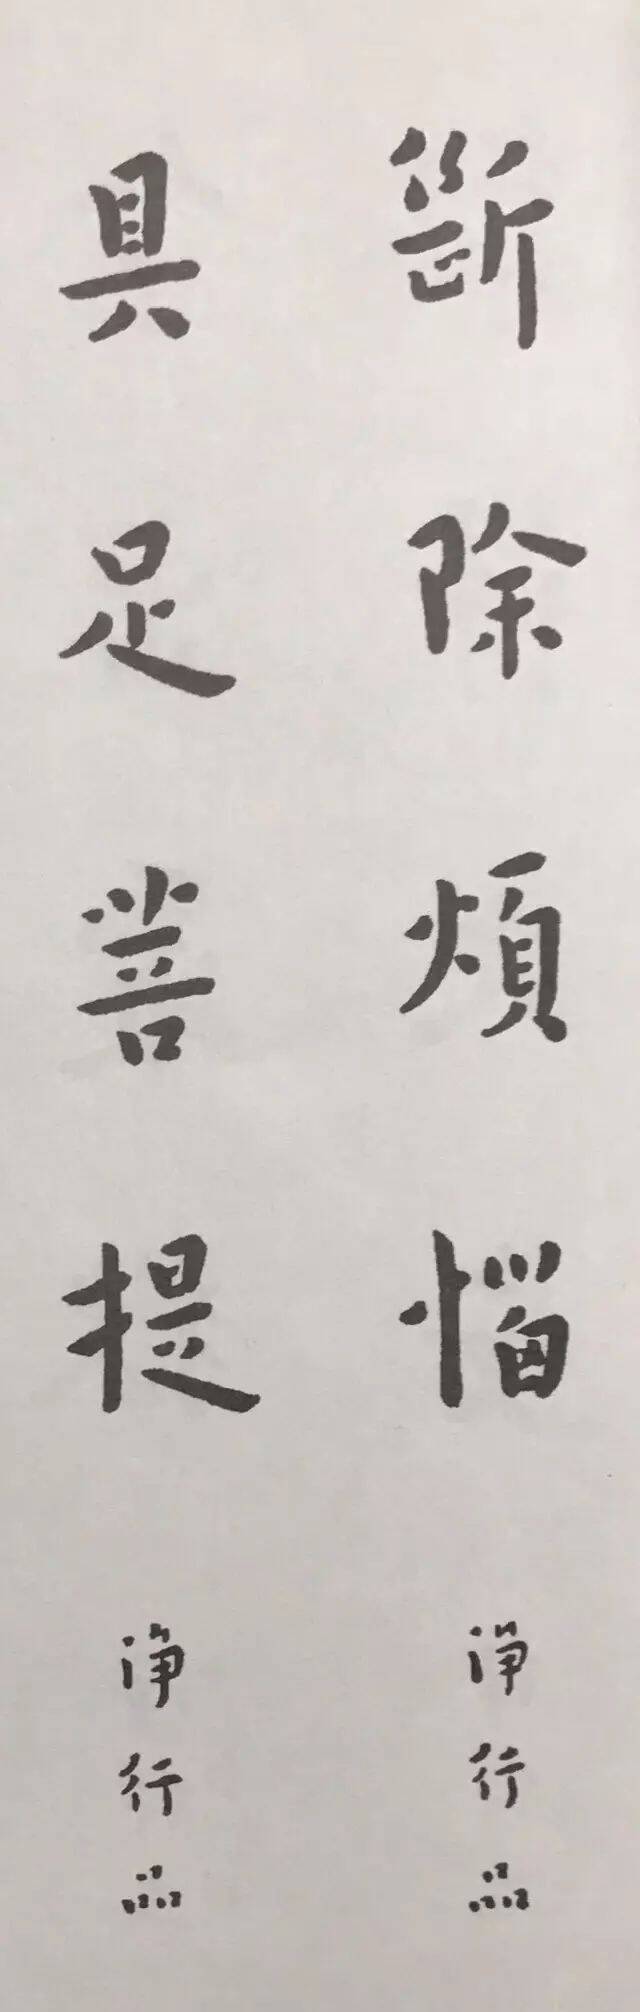 斷除煩惱
淨行品
具足菩提
淨行品